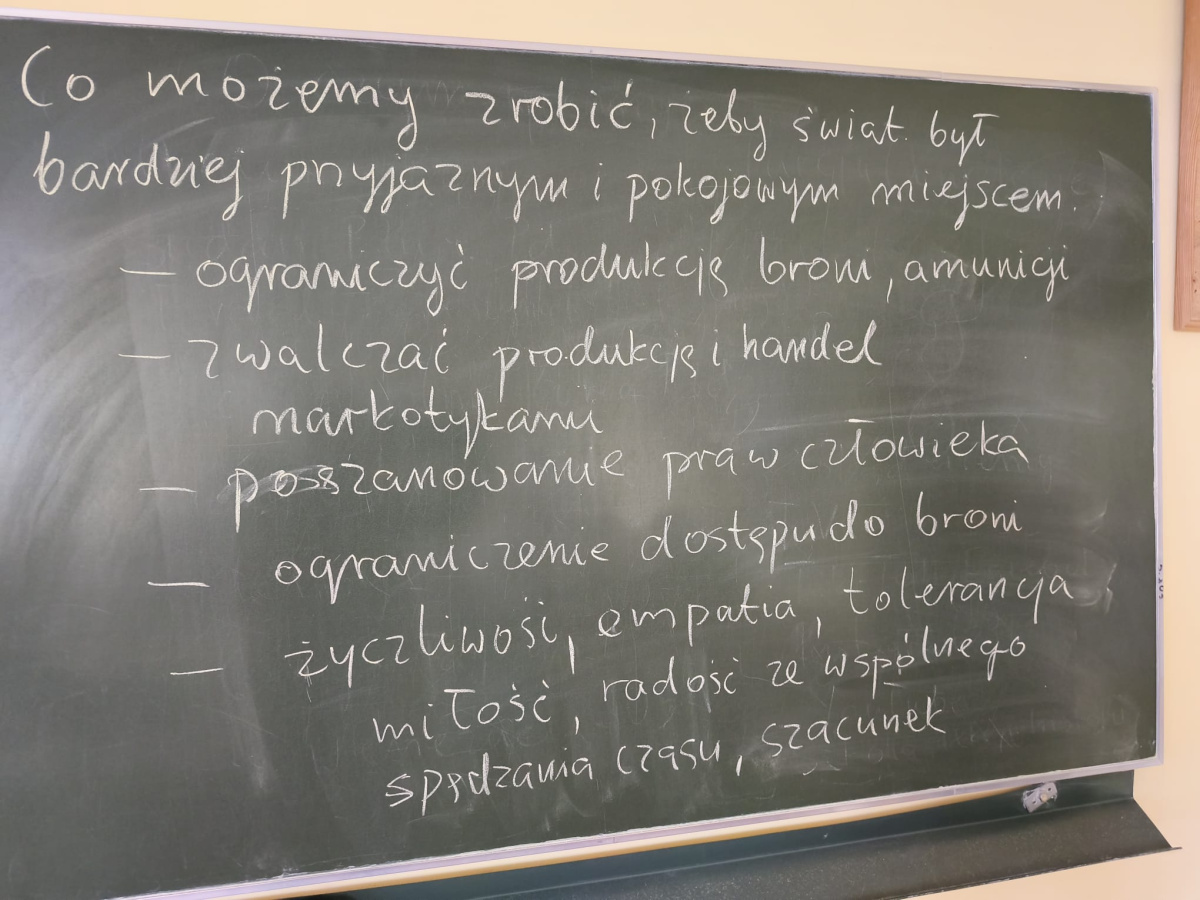 Co możemy zrobić, żeby świat był
bardziej przyjaznym i pokojowym miejscem.
— ograniczyć produkcję broni, amunicji
— zwalczać produkcję i handel
narkotykami
— poszanowanie praw człowieka
— ograniczenie dostępu do broni
— życzliwość, empatia, tolerancja
miłość, radość ze wspólnego
spędzania czasu, szacunek